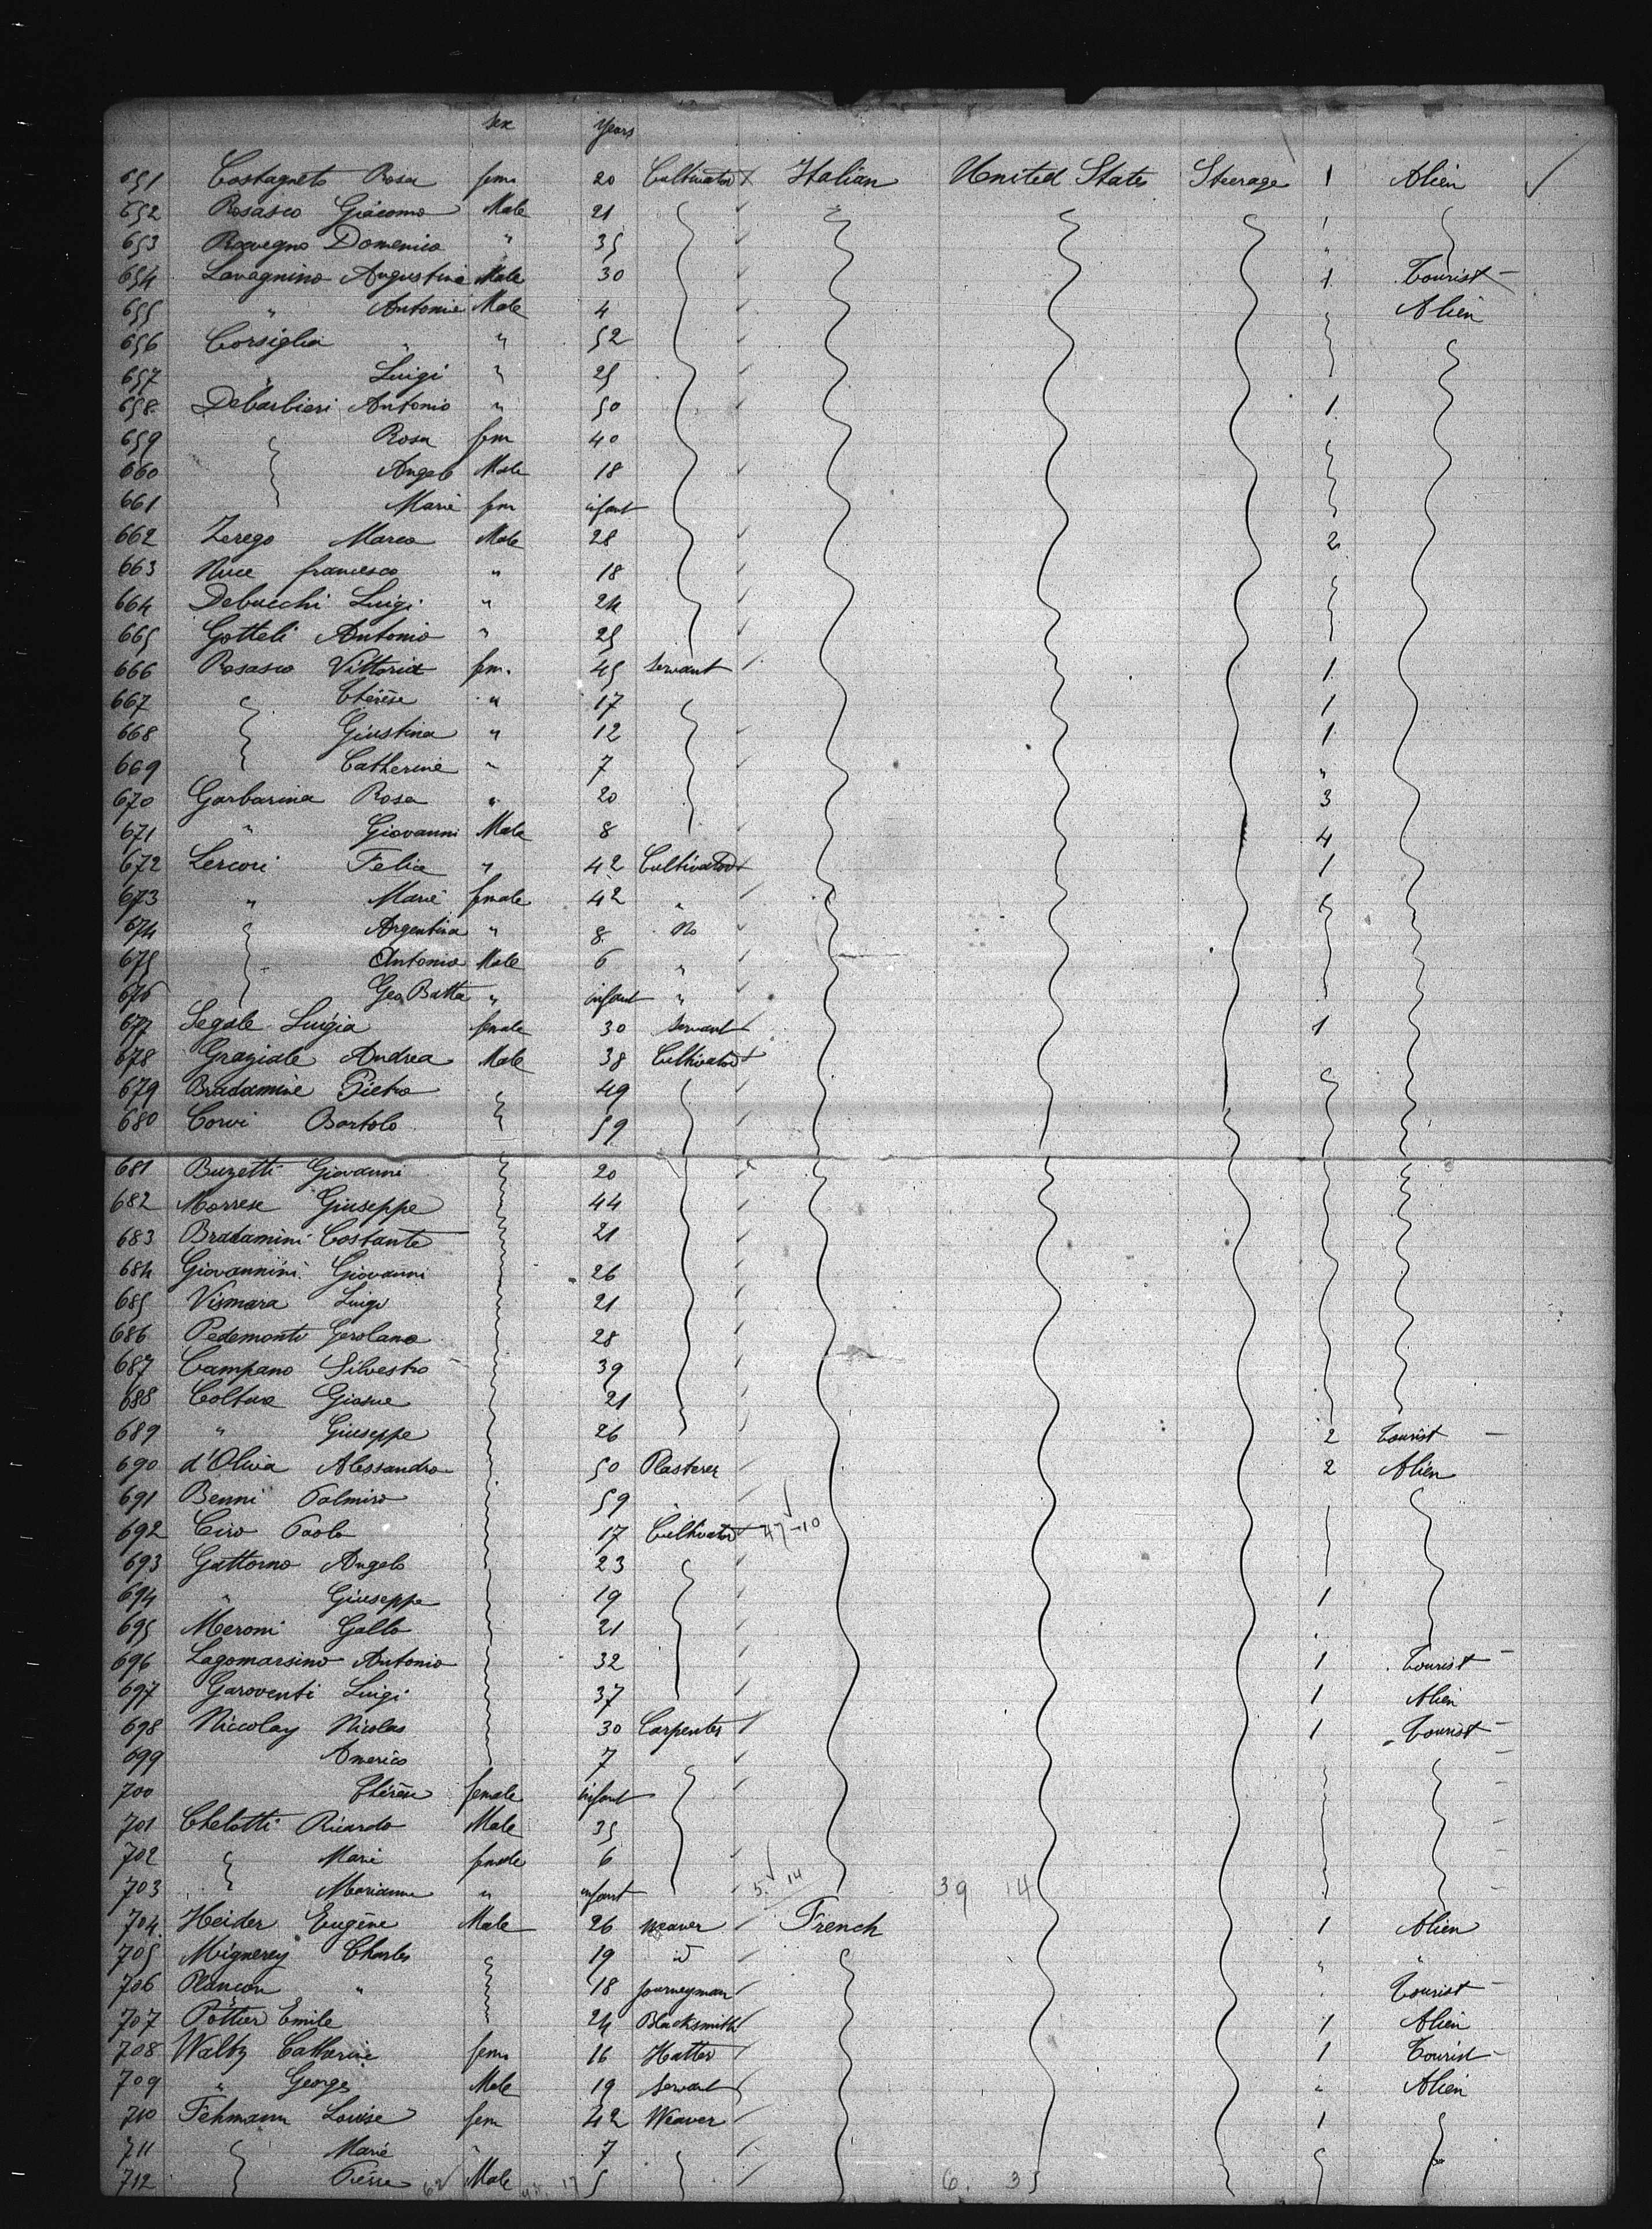 Sex Years
651 Costagneto Rosa fem. 20 Cultivator Italian United States Steerage 1 Alien
652 Rosasco Giacomo Male 21
653 Rovegno Domenico " 35 "
654 Lavagnino Augustine Male 30 1 Tourist
655 " Antonie Male 4 Alien
656 Corsiglia " " 52
657 " Luigi 25
658 Debarbieri Antonio " 50 1
659 Rosa fem 40
660 Angelo Male 18
661 Marie fem infant
662 Zerego Marco Male 28 2
663 Nuce francesco " 18
664 Debucchi Luigi " 24
665 Gotteli Antonio " 25
666 Rosasco Vittoria fem. 45 servant 1
667 Thérèse " 17 1
668 Giustina " 12 1
669 Catherine " 7 "
670 Garbarina Rosa " 20 3
671 " Giovanni Male 8 4
672 Lercori Felia " 42 Cultivator 1
673 " Marie female 42 "
674 Argentina " 8 No
675 Antonio Male 6 "
676 Geo Batta " infant "
677 Segale Luigia female 30 Servant 1
678 Graziale Andrea Male 38 Cultivator
679 Bradamine Pietro 49
680 Corvi Bartolo 59
681 Buzetti Giovanni 20
682 Morrese Giuseppe 44
683 Bradamini Costante 21
684 Giovannini Giovanni 26
685 Vismara Luigi 21
686 Pedemonte Gerolano 28
687 Campano Silvestro 39
688 Coltura Giosue 21
689 " Giuseppe 26 2 Tourist
690 d'Oliva Alessandro 50 Plasterer 2 Alien
691 Benni Palmiro 59
692 Ciro Paolo 17 Cultivator 47-10
693 Gattorno Angelo 23
694 " Giuseppe 19 1
695 Meroni Gallo 21
696 Lagomarsino Antonio 32 1 Tourist
697 Garoventi Luigi 37 1 Alien
698 Niccolay Nicolas 30 Carpenter 1 Tourist
699 Americo 7
700 Thérèse female infant
701 Chelotti Ricardo Male 35
702 Marie female 6
703 Marianne " infant 5 14 39 14
704 Heider Eugène Male 26 Weaver French 1 Alien
705 Mignerey Charles 19 id "
706 Plançon " 18 Journeyman Tourist
707 Pottier Emile 24 Blacksmith 1 Alien
708 Waltz Catherine fem 16 Hatter 1 Tourist
709 " George Male 19 Servant " Alien
710 Fehmann Louise fem 42 Weaver 1
711 Marie " 7
712 Pierre 62 Male 5 6. 35